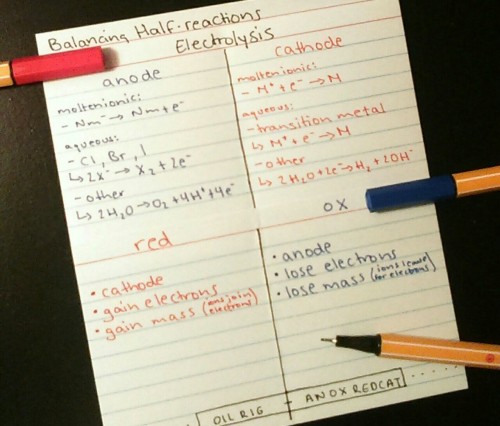 Balancing Half-reactions
Electrolysis
anode
molten ionic:
- Nm⁻ → Nm + e⁻
aqueous:
- Cl, Br, I
↳ 2X⁻ → X₂ + 2e⁻
- other
↳ 2H₂O → O₂ + 4H⁺ + 4e⁻
cathode
molten ionic:
- M⁺ + e⁻ → M
aqueous:
- transition metal
↳ M⁺ + e⁻ → M
- other
↳ 2H₂O + 2e⁻ → H₂ + 2OH⁻
red
• cathode
• gain electrons
• gain mass (ions join electrons)
ox
• anode
• lose electrons
• lose mass (ions leave for electrons)
OIL RIG
AN OX RED CAT